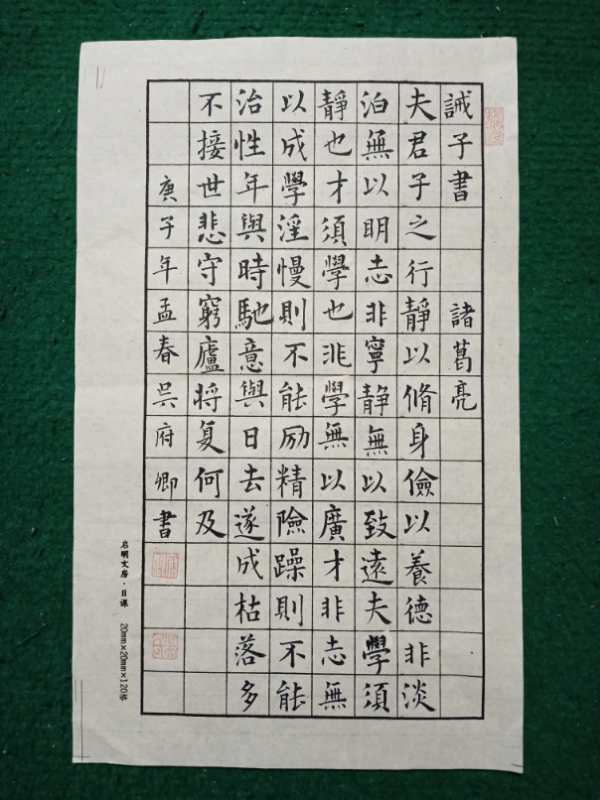 誡子書 諸葛亮
夫君子之行靜以脩身儉以養德非淡
泊無以明志非寧静無以致遠夫學須
静也才須學也非學無以廣才非志無
以成學淫慢則不能励精險躁則不能
治性年與時馳意與日去遂成枯落多
不接世悲守窮廬将复何及
庚子年孟春吳府卿書
启明文房·日课 20mm×20mm×120格